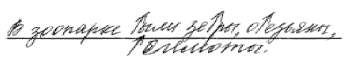 В зоопарке были зебры, обезьяны,
бегемоты.